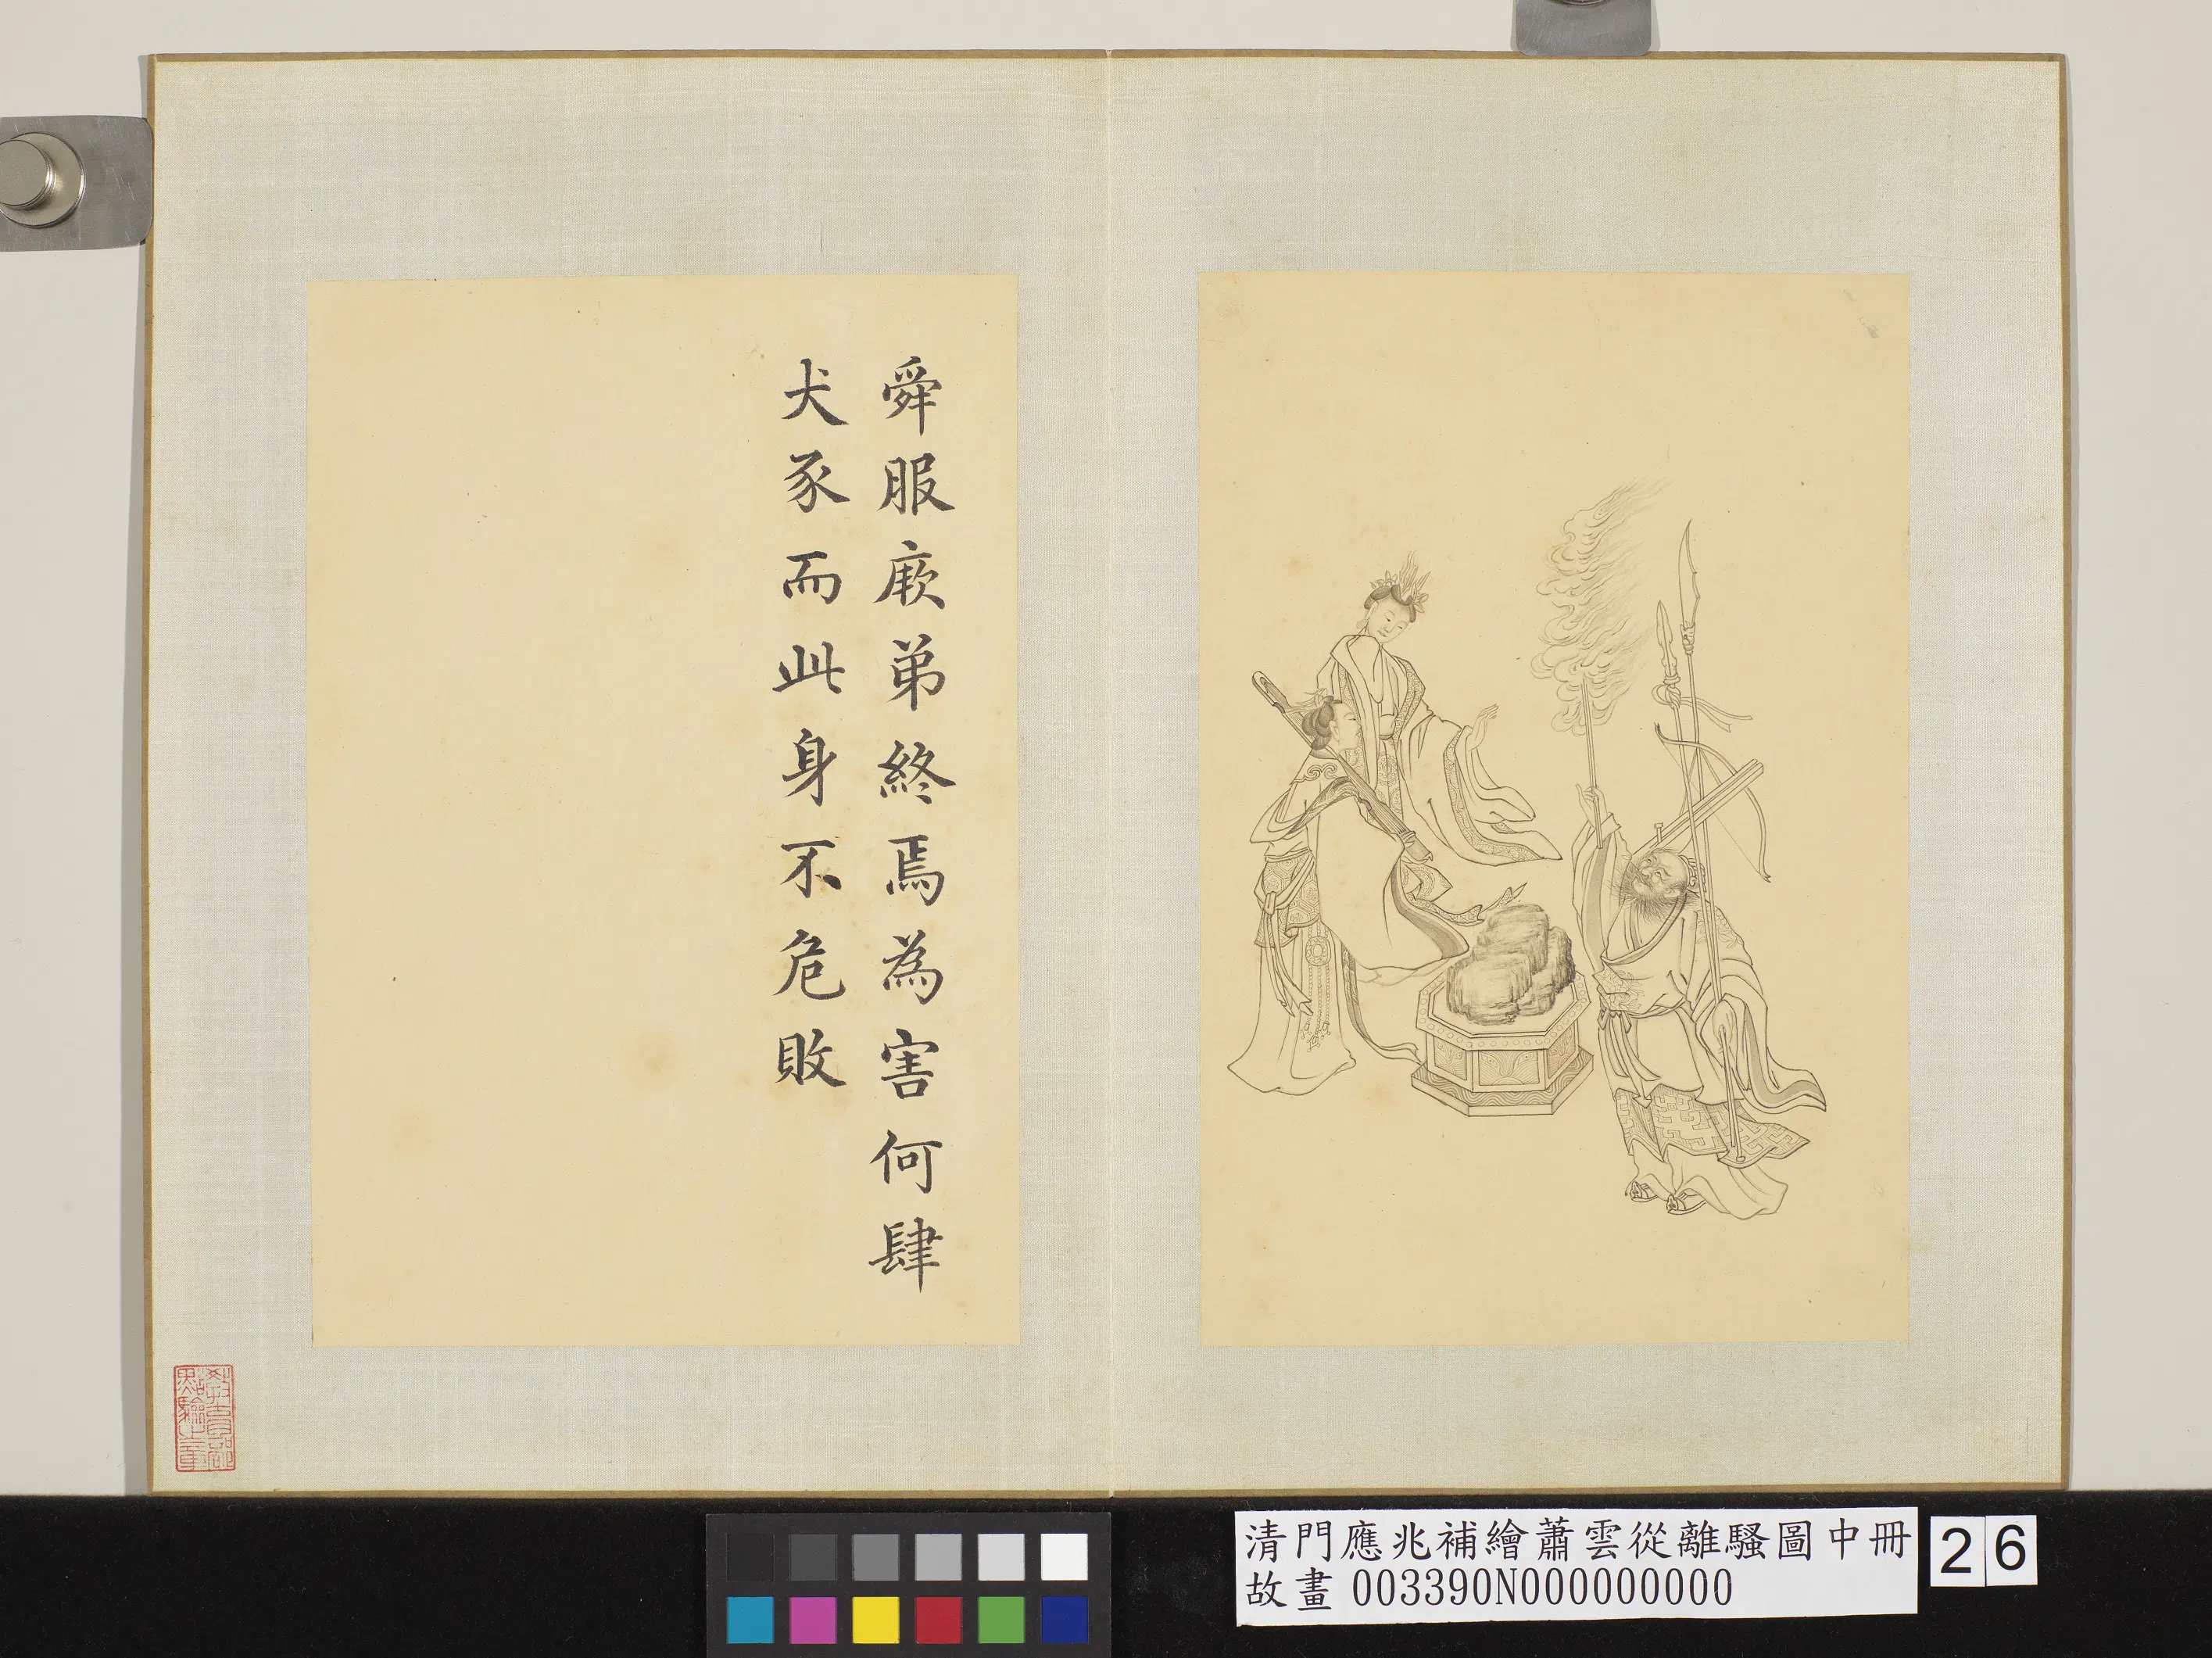 舜服厥弟終焉為害何肆
犬豕而此身不危敗
清門應兆補繪蕭雲從離騷圖中冊
故畫003390N000000000
26